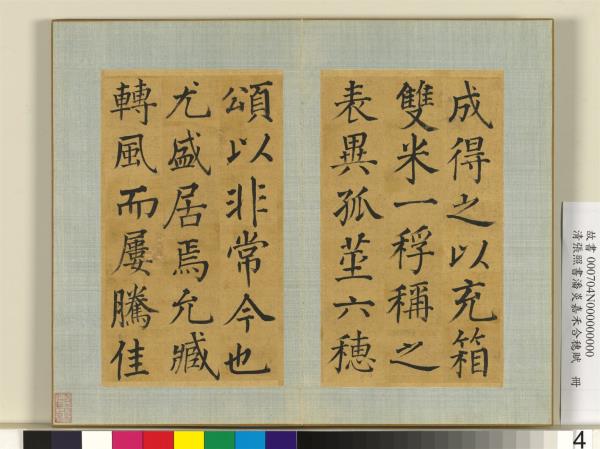 成得之以充箱
雙米一稃稱之
表異孤莖六穗
頌以非常今也
尤盛居焉允臧
轉風而屢騰佳
故書 000704N000000000
清張照書潘炎嘉禾合穗賦 冊
4